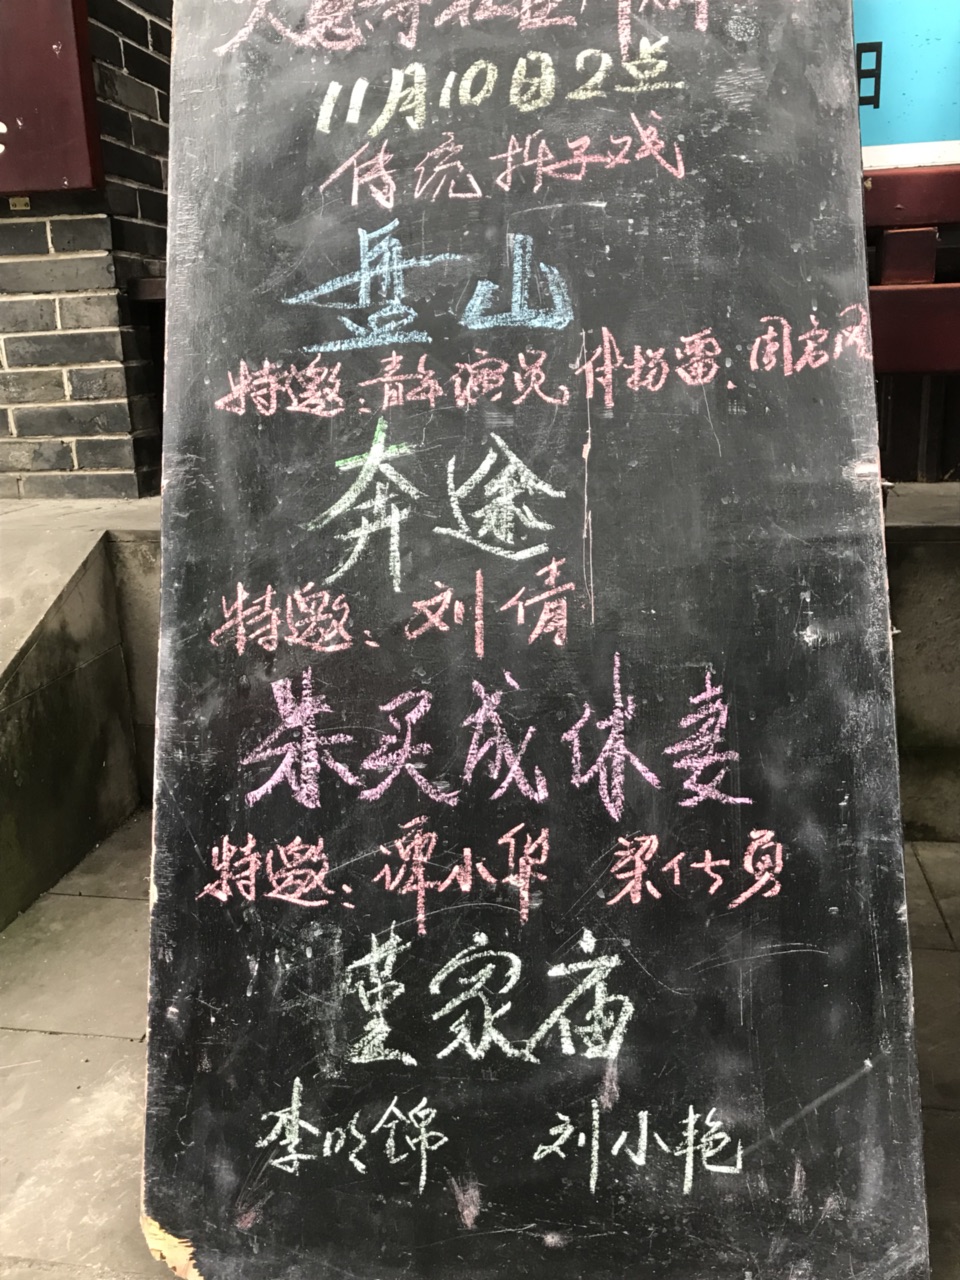 大慈寺社区
11月10日2点
传统折子戏
盘山
特邀:青年演员 周
奔途
特邀:刘倩
朱买成休妻
特邀:谭小华 梁仕勇
董家庙
李明锦 刘小艳
阳